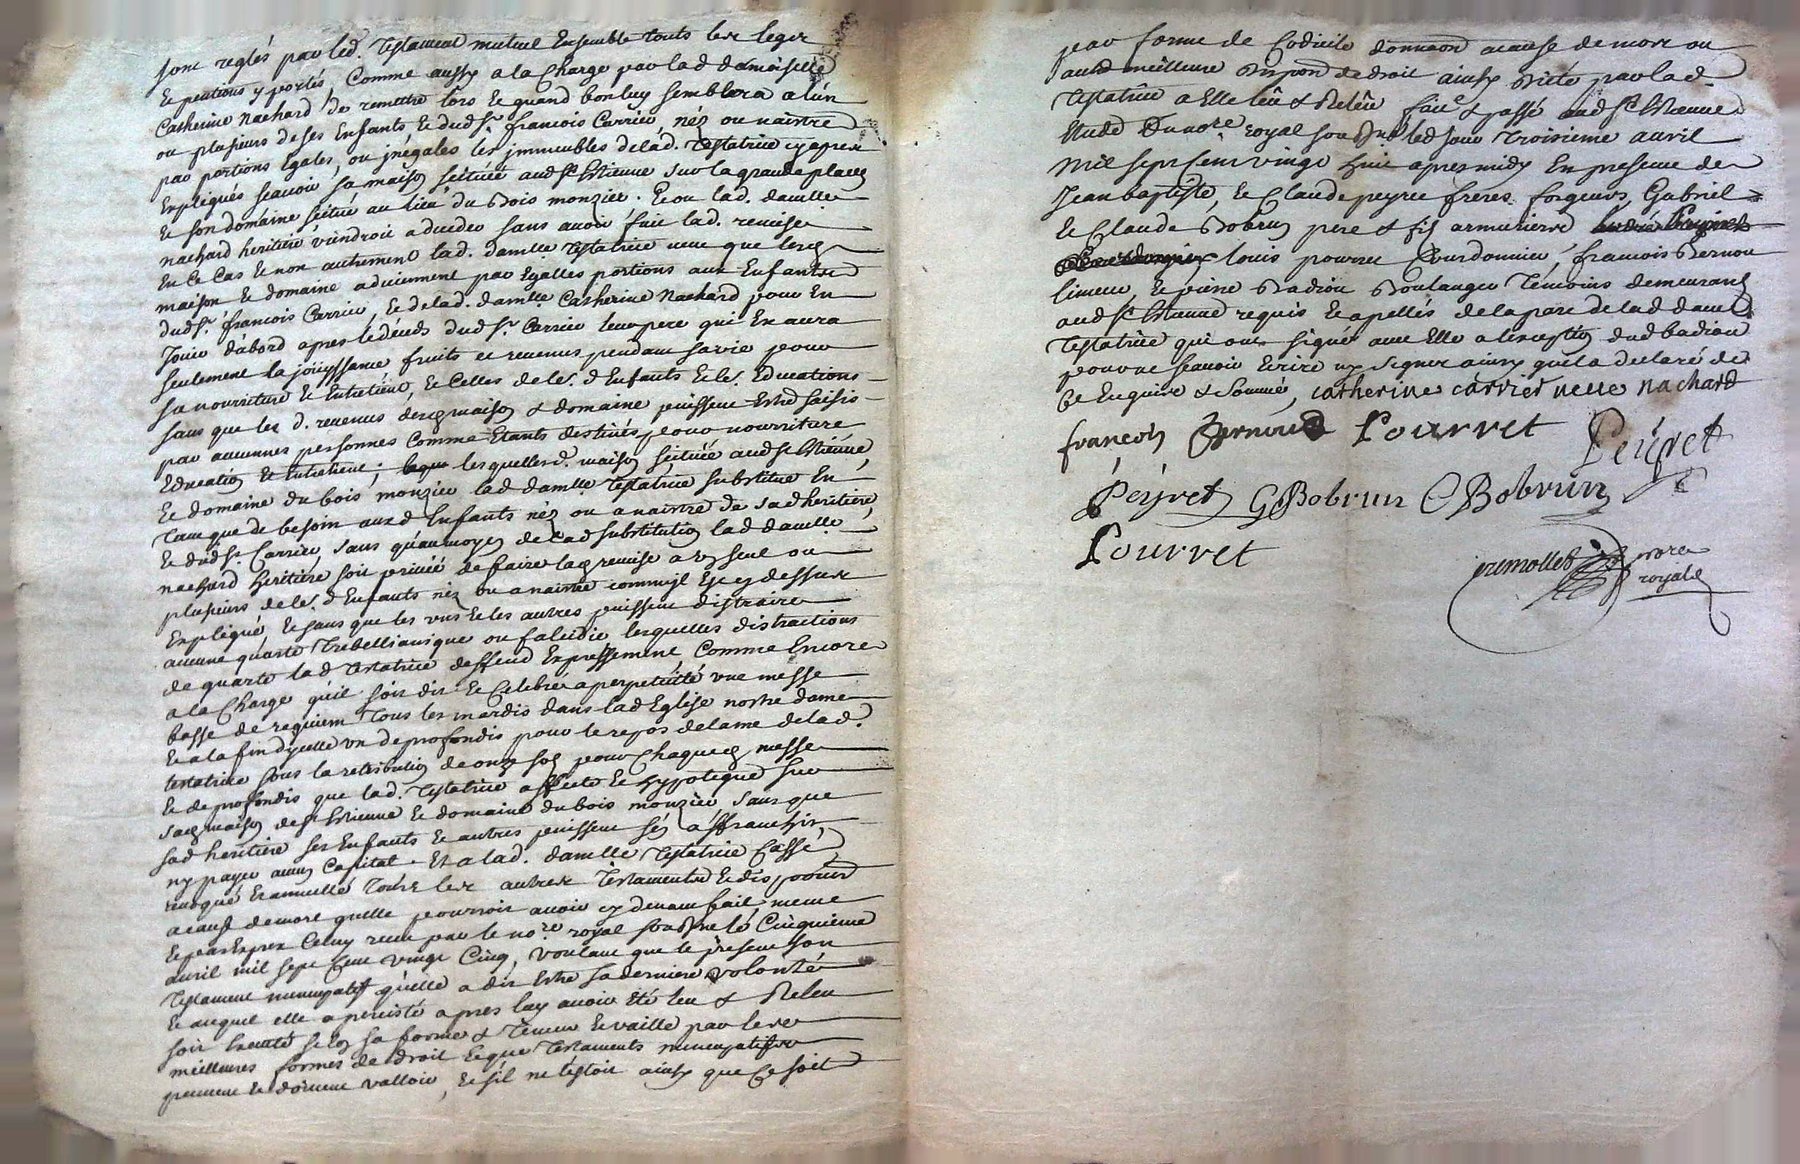 sont reglés par led. Testament mutuel Ensemble touts les legs
Et pentions y portés, Comme aussy a la Charge par lad damoiselle
Catherine Nachard de remettre lors Et quand bon luy semblera a lun
ou plusieurs de ses Enfants, & dud sr. francois Carrier néz ou naistre
par portions Egales, ou jnegales les jmmeubles de lad. Testatrice cy apres
Expliqués scavoir sa maison scituée aud st. Etienne sur la grande place
Et son domaine scitué au lieu du Bois monzier. Et ou lad. damlle
nachard heritiere viendroit a deceder sans avoir fait lad. remise
En ce Cas Et non autrement lad. damlle Testatrice veut que lesd
maison Et domaine adviennent par Egalles portions aux Enfants
dud sr. francois Carrier, Et de lad. damlle Catherine Nachard pour En
Jouir d'abord apres le déceds dud sr. Carrier leur pere qui En aura
seulement la joüyssance fruits et revenus pendant sa vie pour
sa nourriture Et Entretient, Et Celles desd. d Enfants Et leur Educations
sans que les d. revenus desd maison & domaine puissent Estre saisis
par aucunnes personnes Comme Etants destinés pour nourriture
Education Et Entretient; lesquelles d. maison scituée aud st Etienne,
Et domaine du bois monzier lad damlle Testatrice substitue En
Tant que de besoin aux d Enfants néz ou a naistre de sad heritiere
Et dud sr. Carrier, sans qu'au moyen de lad substitution lad damlle
nachard heritiere soit privée de faire lad remise a un seul ou
plusieurs desd. d Enfants néz ou a naistre comm'jl Est cy dessus
Expliqué, Et sans que les uns Et les autres puissent distraire
aucune quarte Trebellianique ou falcidie lesquelles distractions
de quarte lad Testatrice deffend Expressement Comme Encore
a la Charge quil soit dit Et Celebré a perpetuité une messe
basse de requiem Tous les mardis dans lad Eglise nostre dame
Et a la fin dycelle un de profondis pour le repos de lame de lad.
testatrice sous la retribution de onze sols pour Chaque messe
Et de profondis que lad. Testatrice affecte Et hypoteque sur
sad maison de st Etienne Et domaine du bois monzier, sans que
sad heritiere ses Enfants Et autres puissent sen affranchir,
ny payer aucun Capital. Et a lad. damlle Testatrice Cassé,
revoqué Et annullé Touts les autres Testaments Et dispoõns
a cause de mort quelle pourroit avoir cy devant fait, meme
Et par Exprex Celuy receu par le nore royal soubsne le Cinquieme
avril mil sept Cent vingt Cinq, voulant que le present son
Testament nuncupatif quelle a dit Estre sa derniere volonté
Et auquel elle a persisté apres luy avoir été leu & Releu
soit Executé selon sa forme & Teneur Et vaille par les
meilleures formes de droit Et que Testaments nuncupatifs
peuvent Et doivent valloir, Et sil ne lestoit ainsy que Ce soit
par forme de Codicile donnaõn a cause de mort ou
autre meilleure dispoõn de droit ainsy dicté par lad
Testatrice a Elle leu & Releu fait & passé aud st. Etienne
Etude du nore royal soubsne led jour Troisieme avril
mil sept Cent vingt huit apres midy En presence de
Jean baptiste, Et Claude peyret freres forgeurs, Gabriel
Et Claude Bobrun pere & fils armuriers
louis pourret Courdonnier, francois Bernou
limeur, Et pierre Badiou Boulanger Témoins demeurants
aud st. Etienne requis Et apellés de la part de lad damlle
Testatrice qui ont signé avec Elle a lexception dud badiou
pour ne scavoir Ecrire ny signer ainsy quil a declaré de
Ce Enquis & sommé, catherine carrier veuve nachard
francois Bernoud Pourret Peyret
Peyret G Bobrun C Bobrun
Pourret
nore
royal